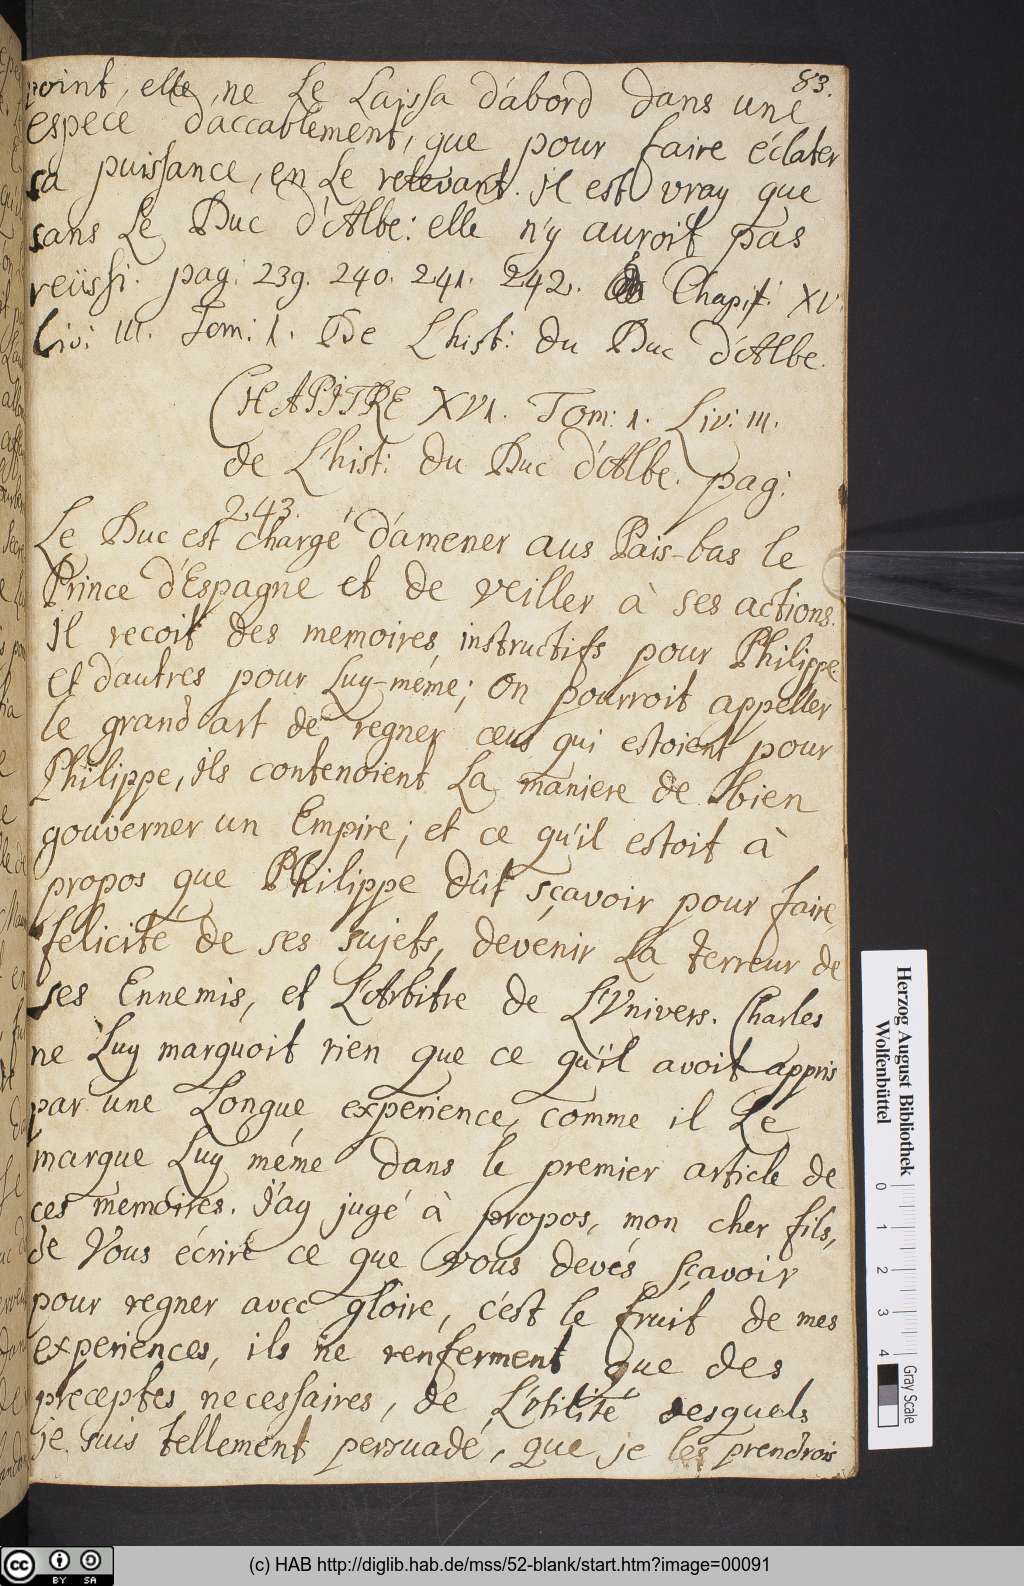 83.
point, elle, ne Le Laissa d'abord dans une
espece d'accablement, que pour faire éclater
sa puissance, en Le relevant. il est vray que
sans Le Duc d'Albe: elle n'y auroit pas
reüssi. pag: 239. 240. 241. 242. Chapit: XV.
Liv: III. Tom: 1. De L'hist: du Duc d'Albe.
CHAPITRE XVI. Tom: 1. Liv: III.
de L'hist: du Duc d'Albe. pag:
243.
Le Duc est chargé d'amener aus Païs-bas le
Prince d'Espagne et de veiller à ses actions.
il recoit des memoires, instructifs pour Philippe
et d'autres pour Luy-méme; On pourroit appeller
le grand art de regner ceus qui estoient pour
Philippe, ils contenoient La maniere de bien
gouverner un Empire; et ce qu'il estoit à
propos que Philippe dût sçavoir pour faire
felicité de ses sujets, devenir La terreur de
ses Ennemis, et L'Arbitre de L'Vnivers. Charles
ne Luy marquoit rien que ce qu'il avoit appris
par une Longue experience, comme il Le
marque Luy méme dans le premier article de
ces memoires. J'ay jugé à propos, mon cher fils,
de Vous écrire ce que vous devés sçavoir
pour regner avec gloire, c'est le fruit de mes
experiences, ils ne renferment que des
preceptes necessaires, de L'vtilité desquels
je suis tellement persuadé, que je les prendrois
Herzog August Bibliothek
Wolfenbüttel
0 1 2 3 4
Gray Scale
CC BY SA
(c) HAB http://diglib.hab.de/mss/52-blank/start.htm?image=00091